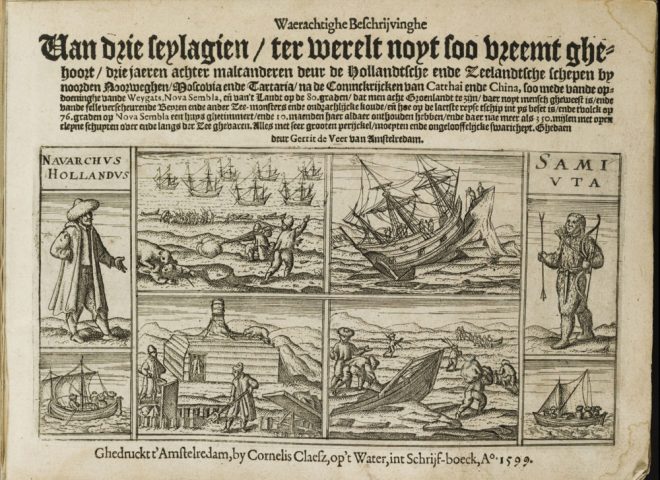 Waerachtighe Beschrijvinghe
Van drie seylagien / ter werelt noyt soo vreemt ghe-
hoort / drie jaeren achter malcanderen deur de Hollandtsche ende Zeelandtsche schepen by
noorden Noorweghen / Moscovia ende Tartaria / na de Coninckrijcken van Catthai ende China, soo mede vande op-
doeninghe vande Weygats, Nova Sembla, eñ van't Landt op de 80. graden / dat men acht Groenlandt te zijn / daer noyt mensch gheweest is / ende
vande felle verscheurende Beyren ende ander Zee-monsters ende ondrachlijcke koude / en hoe op de laetste reyse tschip int ys beset is / ende tvolck op
76. graden op Nova Sembla een huys ghetimmert / ende 10. maenden haer aldaer onthouden hebben / ende daer nae meer als 350. mijlen met open
cleyne schuyten over ende langs der Zee ghevaren. Alles met seer grooten perijckel / moeyten ende ongelooffelijcke swaricheyt. Ghedaen
deur Gerrit de Veer van Amstelredam.
NAVARCHVS
HOLLANDVS
SAMI
VTA
Ghedruckt t'Amstelredam, by Cornelis Claesz, op't Water, int Schrijf-boeck, A°. 1599.